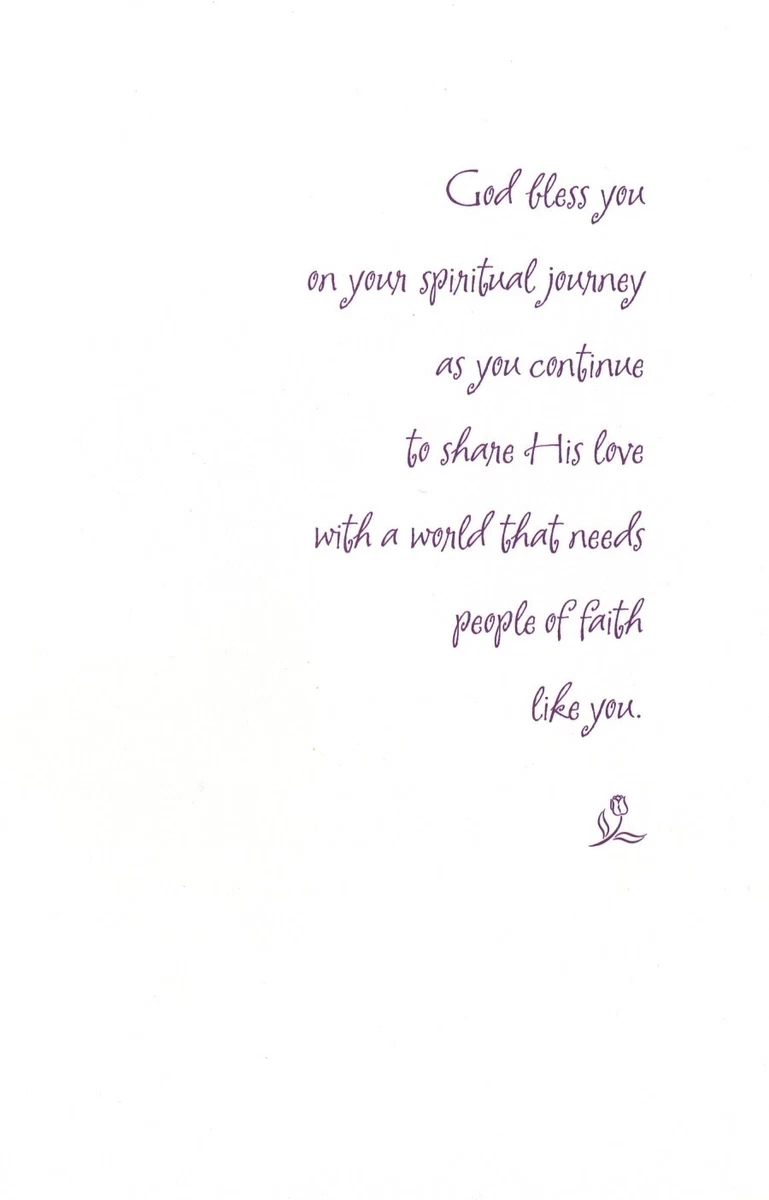 God bless you
on your spiritual journey
as you continue
to share His love
with a world that needs
people of faith
like you.